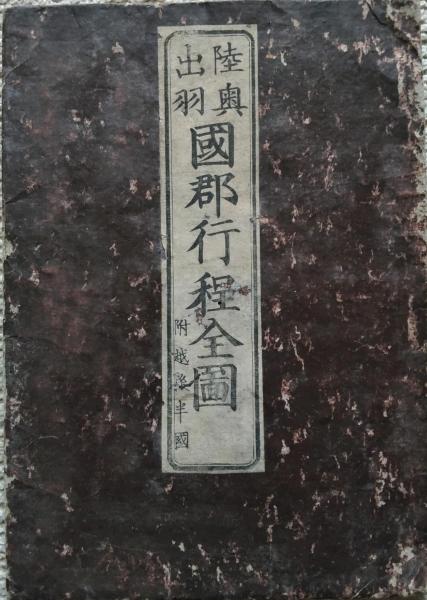 陸奥
出羽
國郡行程全圖
附越後半國